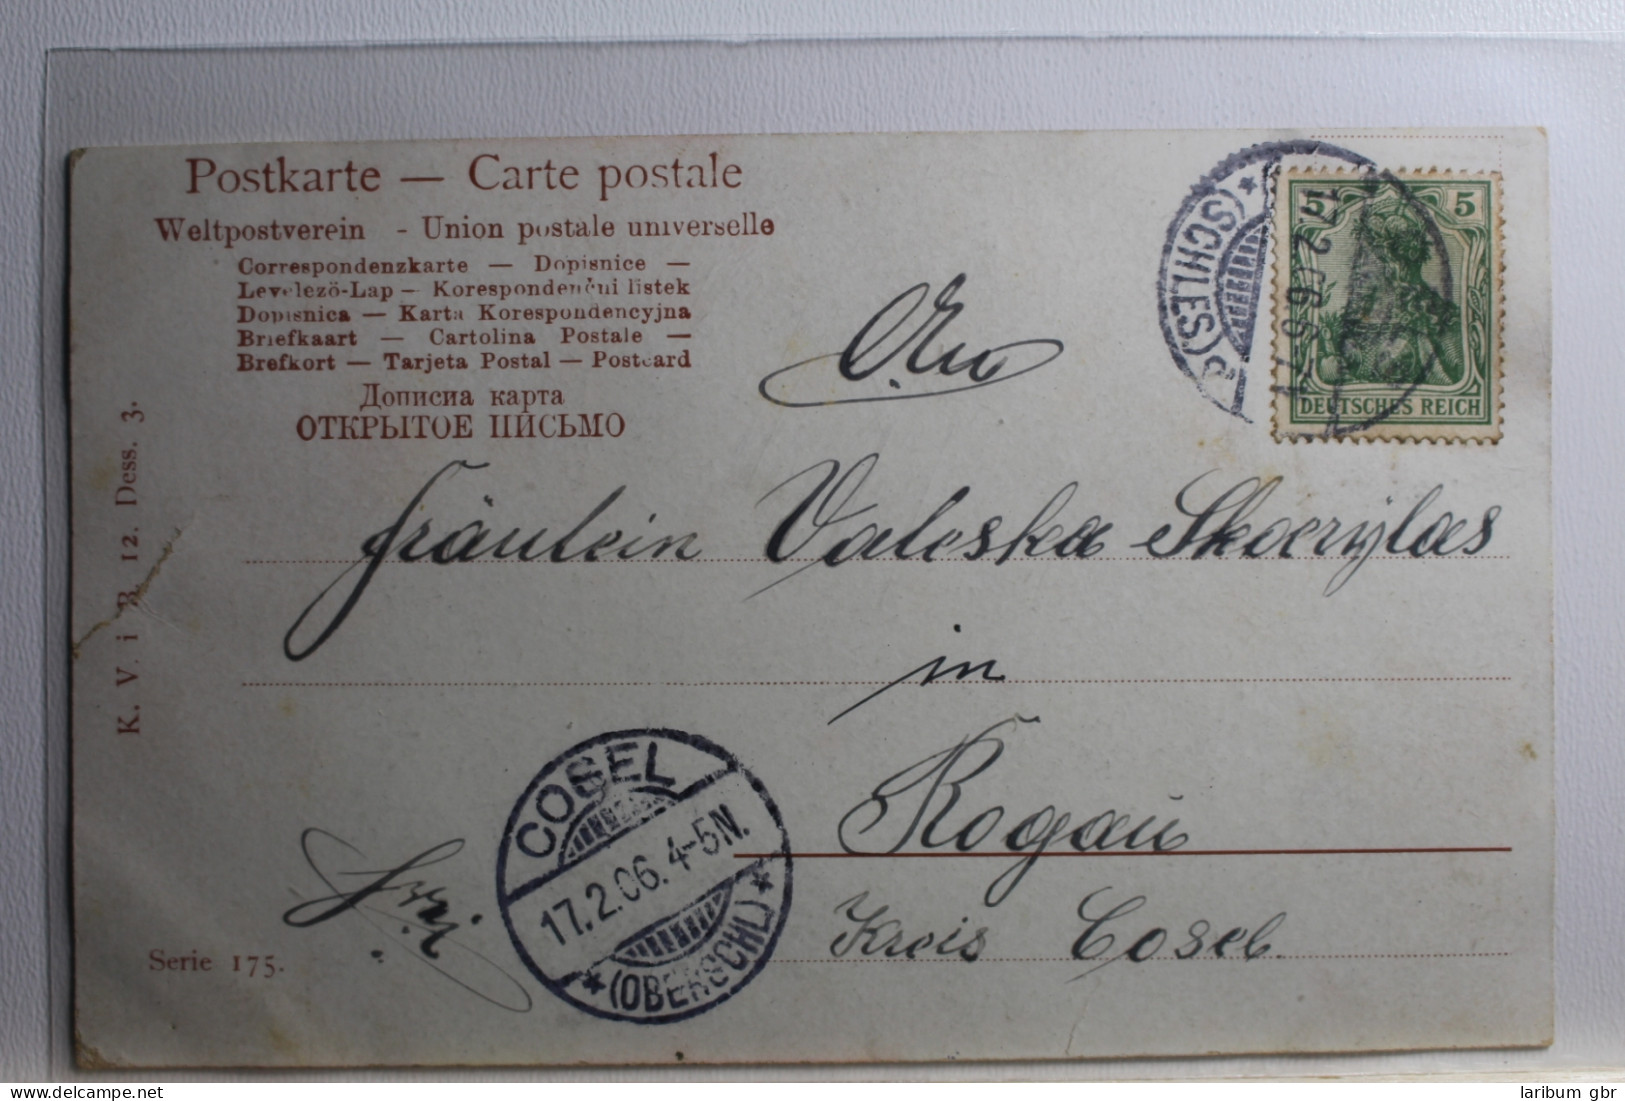 Postkarte — Carte postale
Weltpostverein - Union postale universelle
Correspondenzkarte — Dopisnice —
Levelezö-Lap — Korespondenční listek
Dopisnica — Karta Korespondencyjna
Briefkaart — Cartolina Postale —
Brefkort — Tarjeta Postal — Postcard
Дописна карта
ОТКРЫТОЕ ПИСЬМО
K. V. i B 12. Dess. 3.
Serie 175.
5 5
DEUTSCHES REICH
(SCHLES)
17.2.06.5-
An
Fräulein Valeska
in
Rogau
Kreis Cosel.
COSEL
17.2.06. 4-5N.
* (OBERSCHL) *
www.delcampe.net
laribum gbr